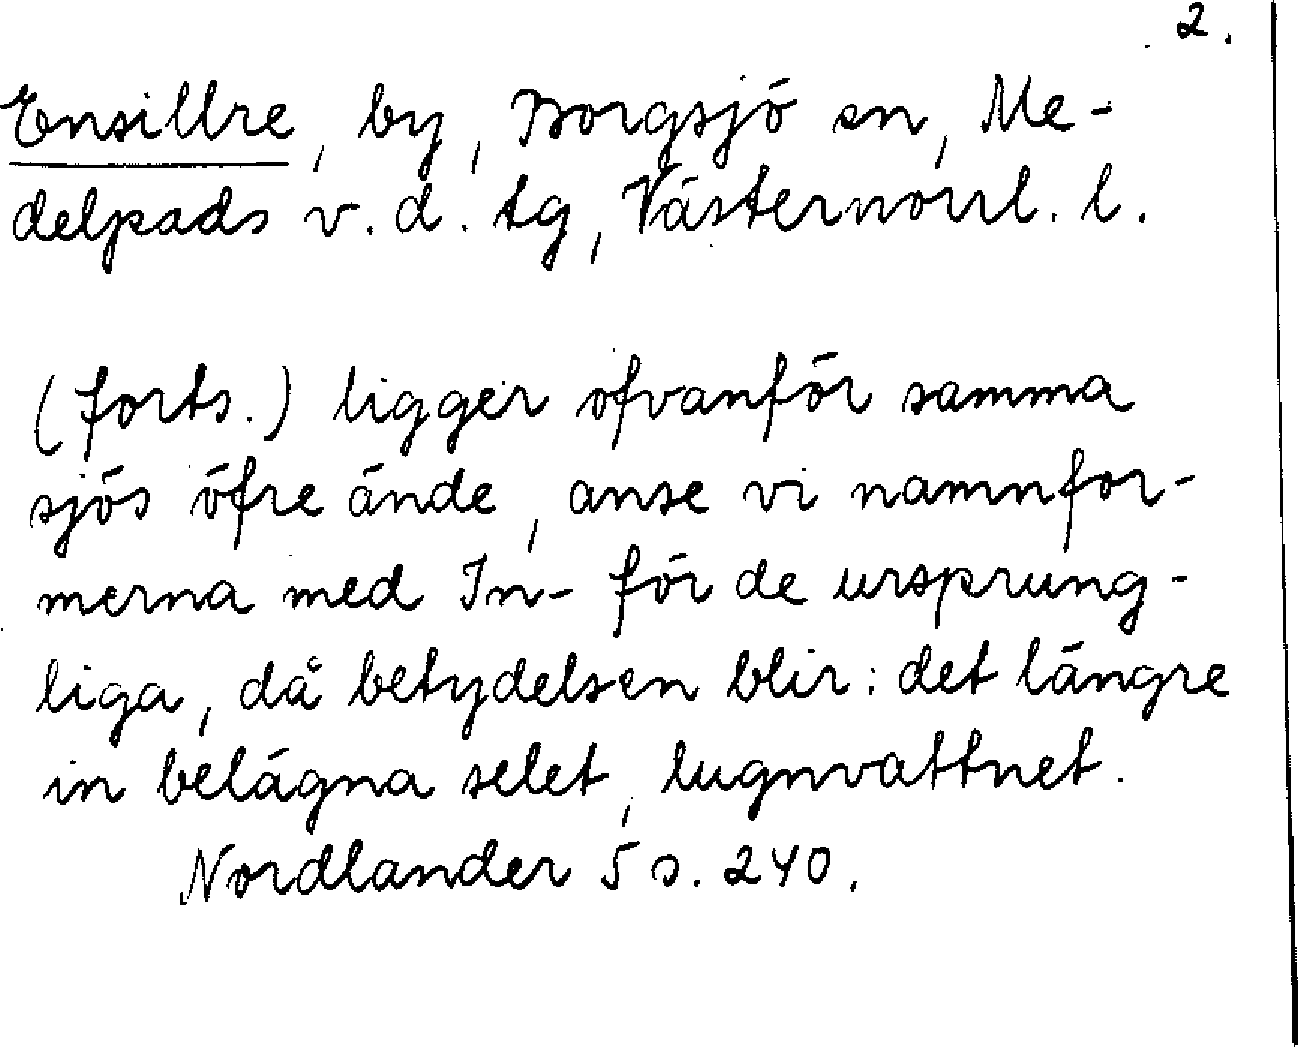 2.
Ensillre, by, Borgsjö sn, Me-
delpads v. d. tg, Västernorrl. l.
(forts.) ligger ofvanför samma
sjös öfre ände, anse vi namnfor-
merna med In- för de ursprung-
liga, då betydelsen blir: det längre
in belägna selet, lugnvattnet.
Nordlander 5 s. 240.